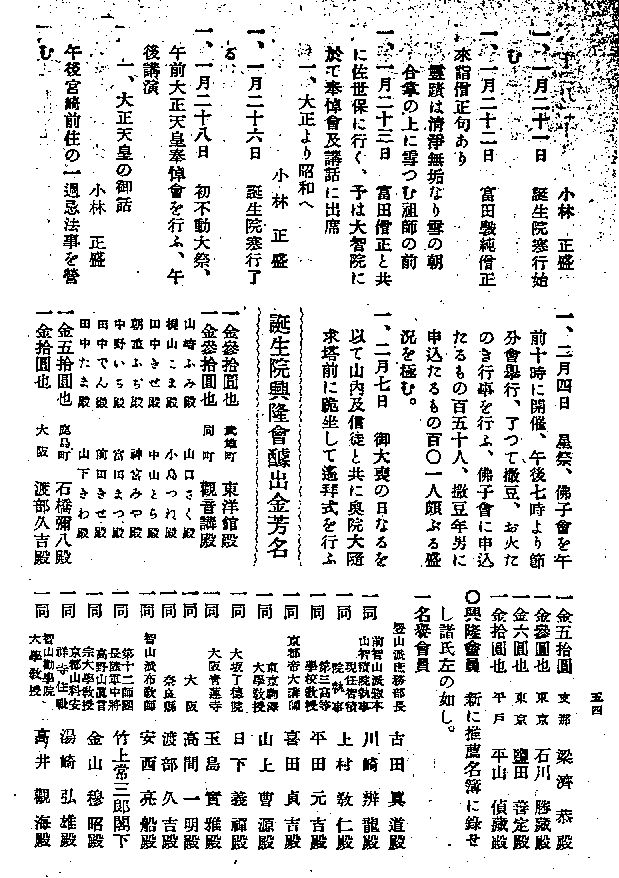 小林正盛
一、一月二十一日　誕生院寒行始
む
一、一月二十二日　富田斅純僧正
來詣僧正句あり
靈蹟は清淨無垢なり雪の朝
合掌の上に雪つむ祖師の前
一、一月二十三日　富田僧正と共
に佐世保に行く、予は大智院に
於て奉悼會及講話に出席
一、大正より昭和へ
小林正盛
一、一月二十六日　誕生院寒行了
る
一、一月二十八日　初不動大祭、
午前大正天皇奉悼會を行ふ、午
後講演
一、大正天皇の御話
小林正盛
午後宮崎前住の一週忌法事を營
む
一、二月四日　星祭、佛子會を午
前十時に開催、午後七時より節
分會擧行、了つて撒豆、お火た
のき行事を行ふ、佛子會に申込
たるもの百五十人、撒豆年男に
申込たるもの百〇一人頗ぶる盛
況を極む。
一、二月七日　御大喪の日なるを
以て山內及信徒と共に奧院大隨
求塔前に跪坐して遙拜式を行ふ
誕生院興隆會醵出金芳名
一金參拾圓也　武雄町　東洋館殿
一金參拾圓也　同町　觀音講殿
山崎ふみ殿　山口さく殿
梶山こま殿　小島つれ殿
田中きせ殿　中山とら殿
朝重ふぢ殿　神宮みや殿
中野いち殿　富田まつ殿
田中でん殿　前田きせ殿
田中たま殿　山下きわ殿
一金五拾圓也　鹿島町　石橋彌八殿
一金拾圓也　大阪　渡部久吉殿
一金五拾圓　支那　梁濟恭殿
一金參圓也　東京　石川勝藏殿
一金六圓也　東京　鹽田善定殿
一金拾圓也　平戶　平山偵藏殿
〇興隆會員　新に推薦名簿に錄せ
し諸氏左の如し。
一名譽會員
豐山派庶務部長　古田眞道殿
一同　前智山派宗本山智積院執事　川崎辨龍殿
一同　現住智積院執事　上村敎仁殿
一同　第三高等學校敎授　平田元吉殿
一同　京都帝大講師　喜田貞吉殿
一同　東京駒澤大學敎授　山上曹源殿
一同　大坂了德院　日下義禪殿
一同　大阪靑蓮寺　玉島實雅殿
一同　大阪　高間一明殿
一同　奈良縣　渡部久吉殿
一同　智山派布敎師　安西亮船殿
一同　第十二師團長陸軍中將　竹上常三郎閣下
一同　高野山眞言宗大學敎授　金山穆昭殿
一同　京都山科安祥寺住職　湯崎弘雄殿
一同　智山勸學院大學敎授　高井觀海殿
五四